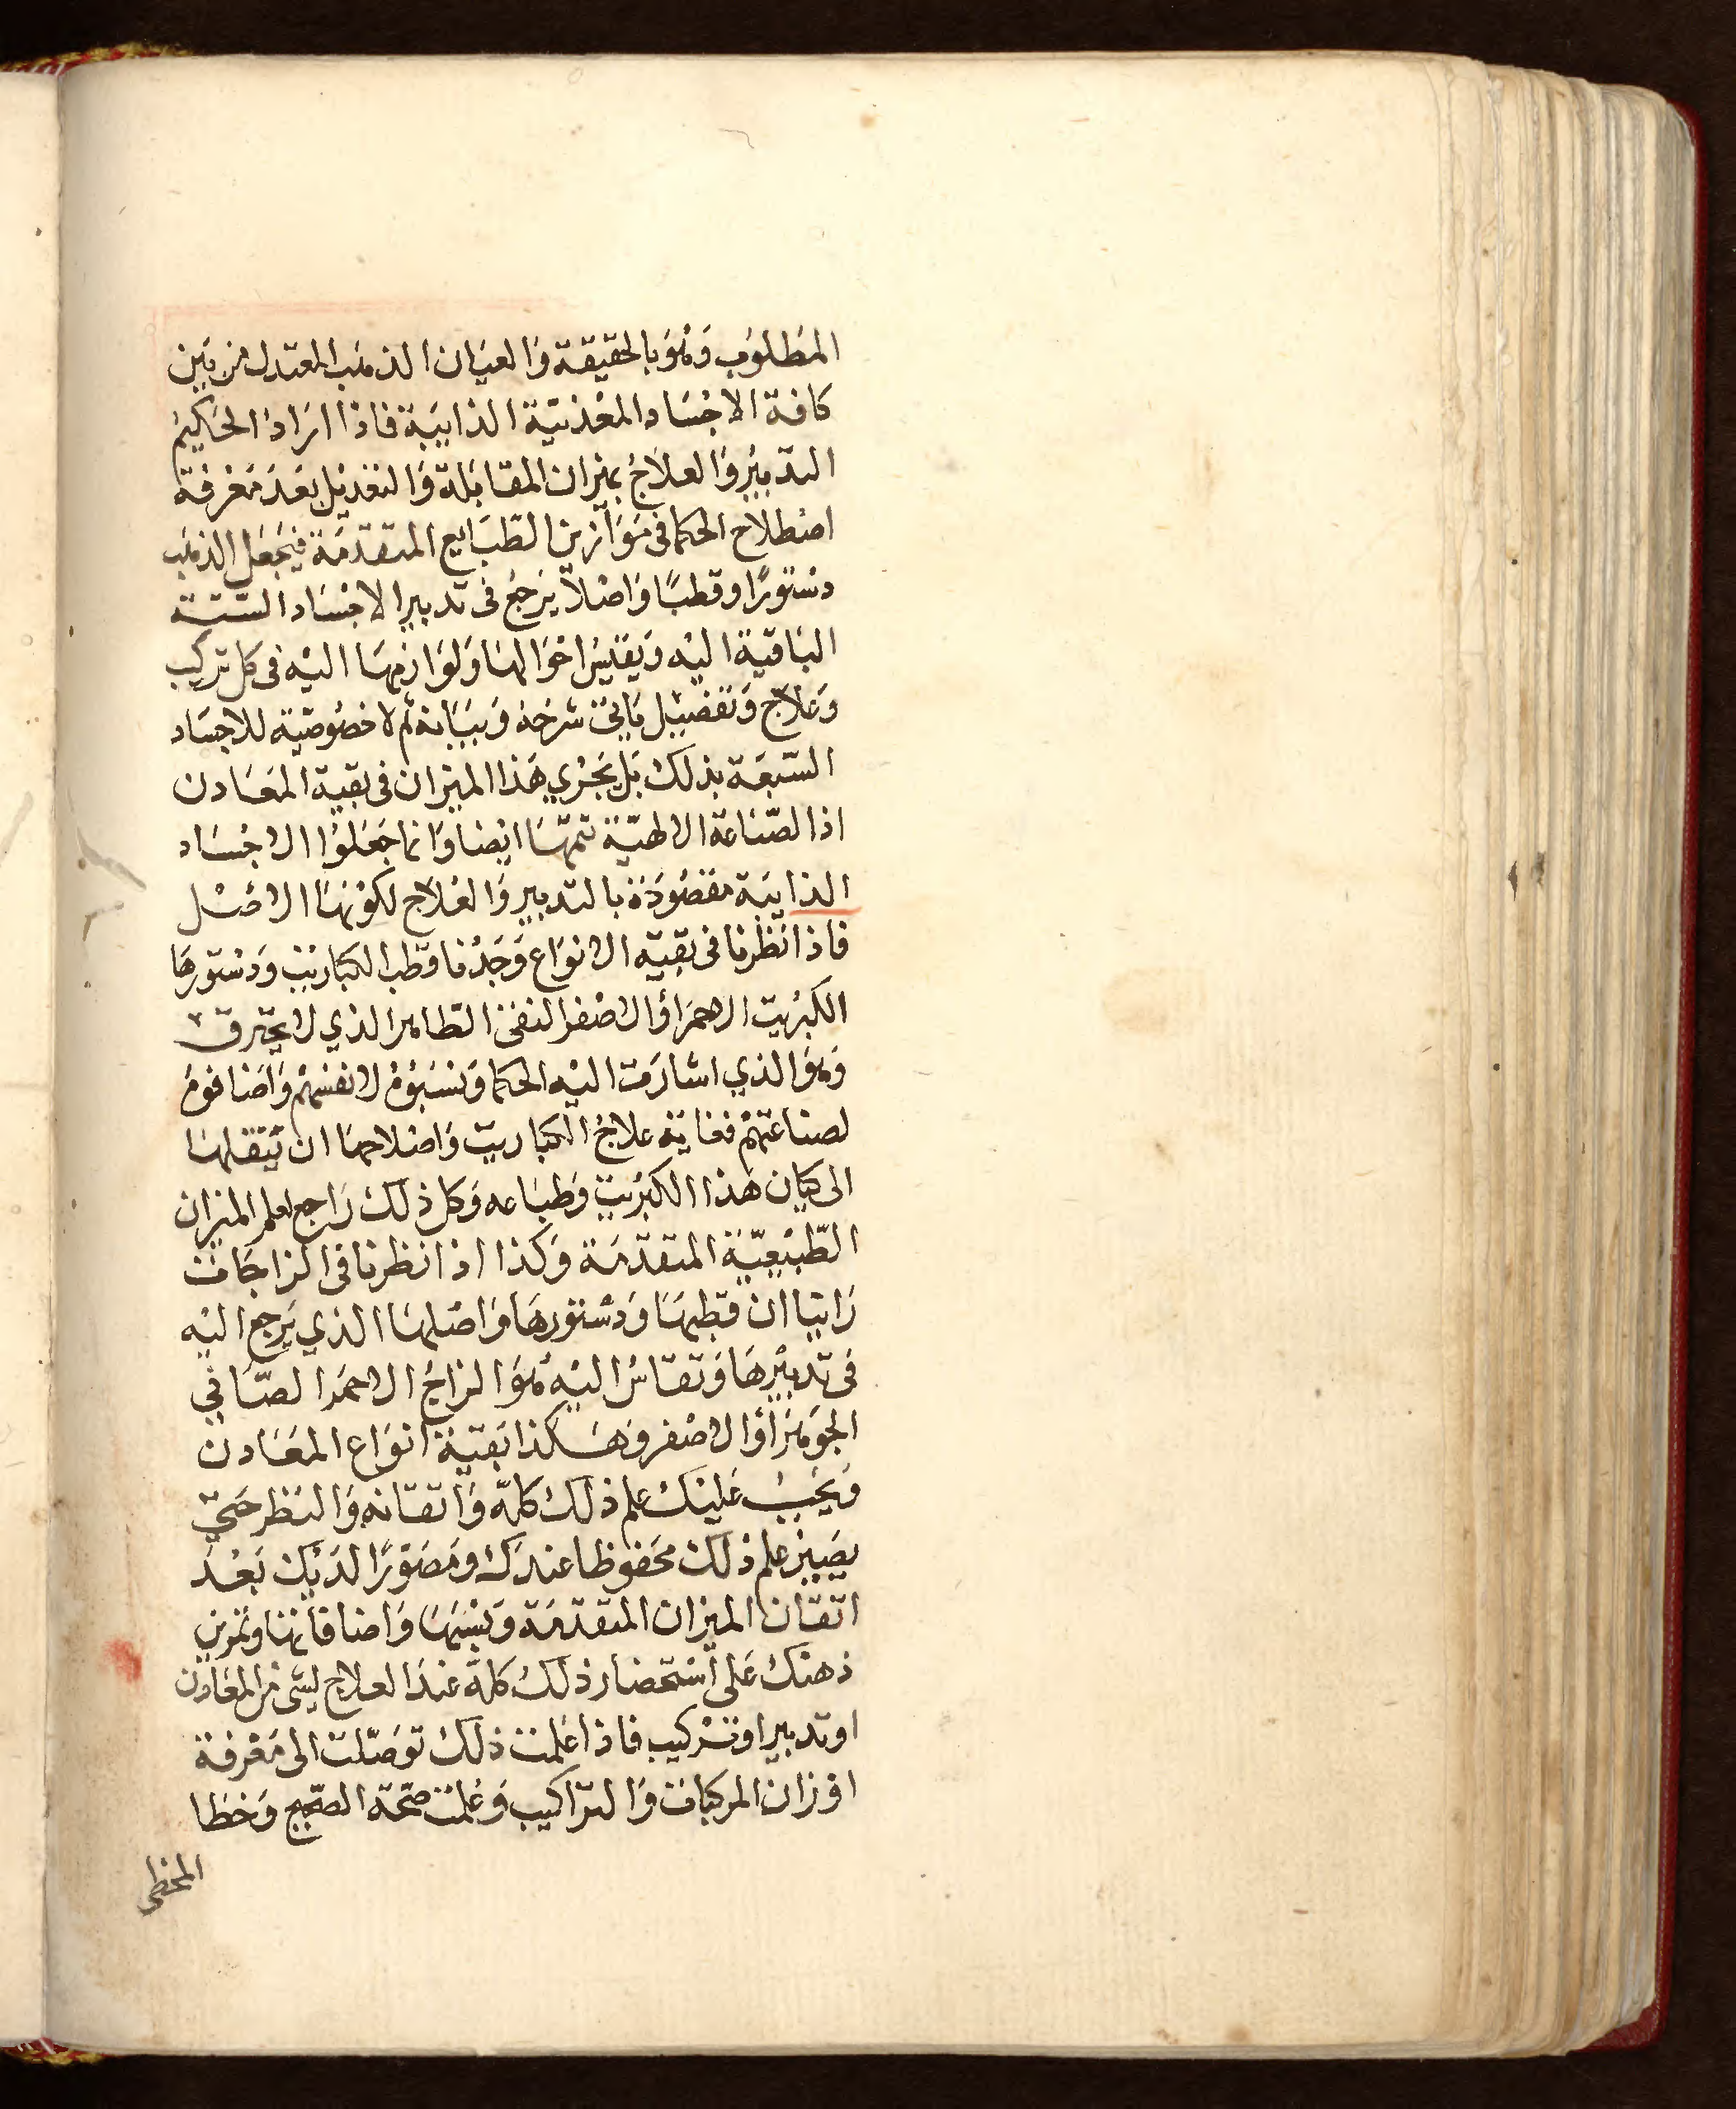 المَطلوُب وَهُوَ بالحقيقة وَالعيَان الذهَب المعتدل من بَين
كافة الاجْسَاد المعْدنيّة الذايبَة فاذا ارَادَ الحَكيمُ
التدبيرُ وَالعلاَجُ بميزان المقابَلة وَالتعْديْل بَعدَ مَعْرفة
اصْطلاَح الحكما فى مَوَازين الطّبَايع المتقدّمَة فيَجعَل الذهَب
دسْتورًا وقطبًا وَاصْلاً يَرجعُ فى تدبير الاجْسَاد الستّة
البَاقية اليْه وَيقيسُ احْوَالهَا وَلوَازمهَا اليْه فى كل تركيب
وَعلاَج وَتفضيْل يَاتى شرحُهُ وَبيَانهُ ثم لا خصُوصيّة للاجسَاد
السّبعَة بذلك بَل يَجْري هَذا الميزان فى بقية المعَادن
اذ الصّنَاعَة الالهيّة تمّهَا ايْضا وَانما جَعَلوُا الاجْسَاد
الذايبَة مقصُودَة بالتدبير وَالعْلاج لكوْنهَا الاصْل
فاذا نَظرنا فى بَقيّه الانوَاع وَجَدْنا قطب الكبَاريْت وَدسْتورهَا
الكبرْيت الاحمَر أو الاصْفر النقى الطّاهر الذي لا يحترق
وَهوَ الذي اشارَت اليْه الحكما وَنسَبوُهُ لانفسْهم وَاضَافوهُ
لصناعتهمْ فغايَة علاجُ الكبَاريت وَاصْلاحهَا ان تنقلهَا
الى كيَان هَذا الكبرْيت وَطبَاعه وَكل ذلك رَاجع لعلم الميزان
الطّبيْعيّة المتقدّمَة وَكذا اذا نظرنا فى الزاجَات
رَاينا ان قطبهَا وَدسْتورهَا وَاصْلهَا الذي يَرجع اليْه
فى تدبيْرهَا وَتقاسُ اليْه هُوَ الزاجُ الاحمَر الصّافي
الجوهَر أو الاصْفر وهَكذا بَقيّة انوَاع المعَادن
وَيَجبُ عَليْك علم ذلك كلهّ وَاتقانه وَالنظر حَتى
يصَير علم ذلك محَفوظا عندك ومَصَوّرًا لدَيْك بَعْدَ
اتقان الميزان المتقدمَة وَنسَبهَا وَاضافاتهَا وتمرين
ذهنك عَلى اسْتحضار ذلك كلهّ عندَ العلاج لشى من المعَادن
او تدبير او ترْكيب فاذا عَلمتَ ذلك توَصّلت الى مَعْرفة
اوْزان المركبات وَالترَاكيب وَعَلمْتَ صحّة الصّحيح وَخطا
المخطى